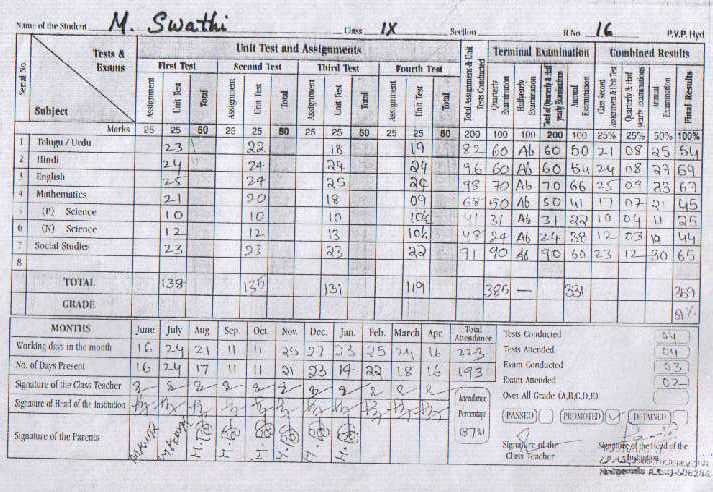 Name of the Student M. Swathi Class IX Section R No 16 P.V.P. Hyd
Serial No. Tests & Exams Subject Unit Test and Assignments Total Assignment & Unit Tests Conducted Terminal Examination Combined Results
First Test Second Test Third Test Fourth Test
Assignment Unit Test Total Assignment Unit Test Total Assignment Unit Test Total Assignment Unit Test Total Quarterly Examination Halfyearly Examination Total of Quarterly & Half yearly Examinations Annual Examination Quarterly & Half yearly examinations Annual Examination Final Results
Marks 25 25 50 25 25 50 25 25 50 25 25 50 200 100 100 200 100 25% 25% 50% 100%
1 Telugu / Urdu 23 22 18 19 82 60 Ab 60 50 21 08 25 54
2 Hindi 24 24 24 24 96 60 Ab 60 54 24 08 27 59
3 English 25 24 25 24 98 70 Ab 70 66 25 09
4 Mathematics 21 20 18 09 68 50 Ab 50 41 17 07 21 45
5 (P) Science 10 10 10 41 31 Ab 31 22 10 04 11 25
6 (N) Science 12 12 13 48 24 Ab 24 38 12 03 44
7 Social Studies 23 23 23 22 91 90 Ab 90 60 23 12 30 65
8
TOTAL 138 135 131 119 385 — 331
GRADE
MONTHS June July Aug Sep. Oct. Nov. Dec. Jan. Feb. March Apr. Total Attendance
Working days in the month 16 24 21 11 11 25 27 23 25 24 16 223
No. of Days Present 16 24 17 11 11 21 23 14 22 18 16 193
Signature of the Class Teacher
Signature of Head of the Institution
Signature of the Parents
Attendance Percentage
Tests Conducted 04
Tests Attended 04
Exam Conducted 03
Exam Attended 02
Over All Grade (A,B,C,D,E)
PASSED PROMOTED DETAINED
Signature of the Class Teacher
Signature of the Head of the Institution